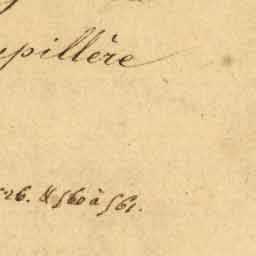 pillère
26. & 560 à 561.